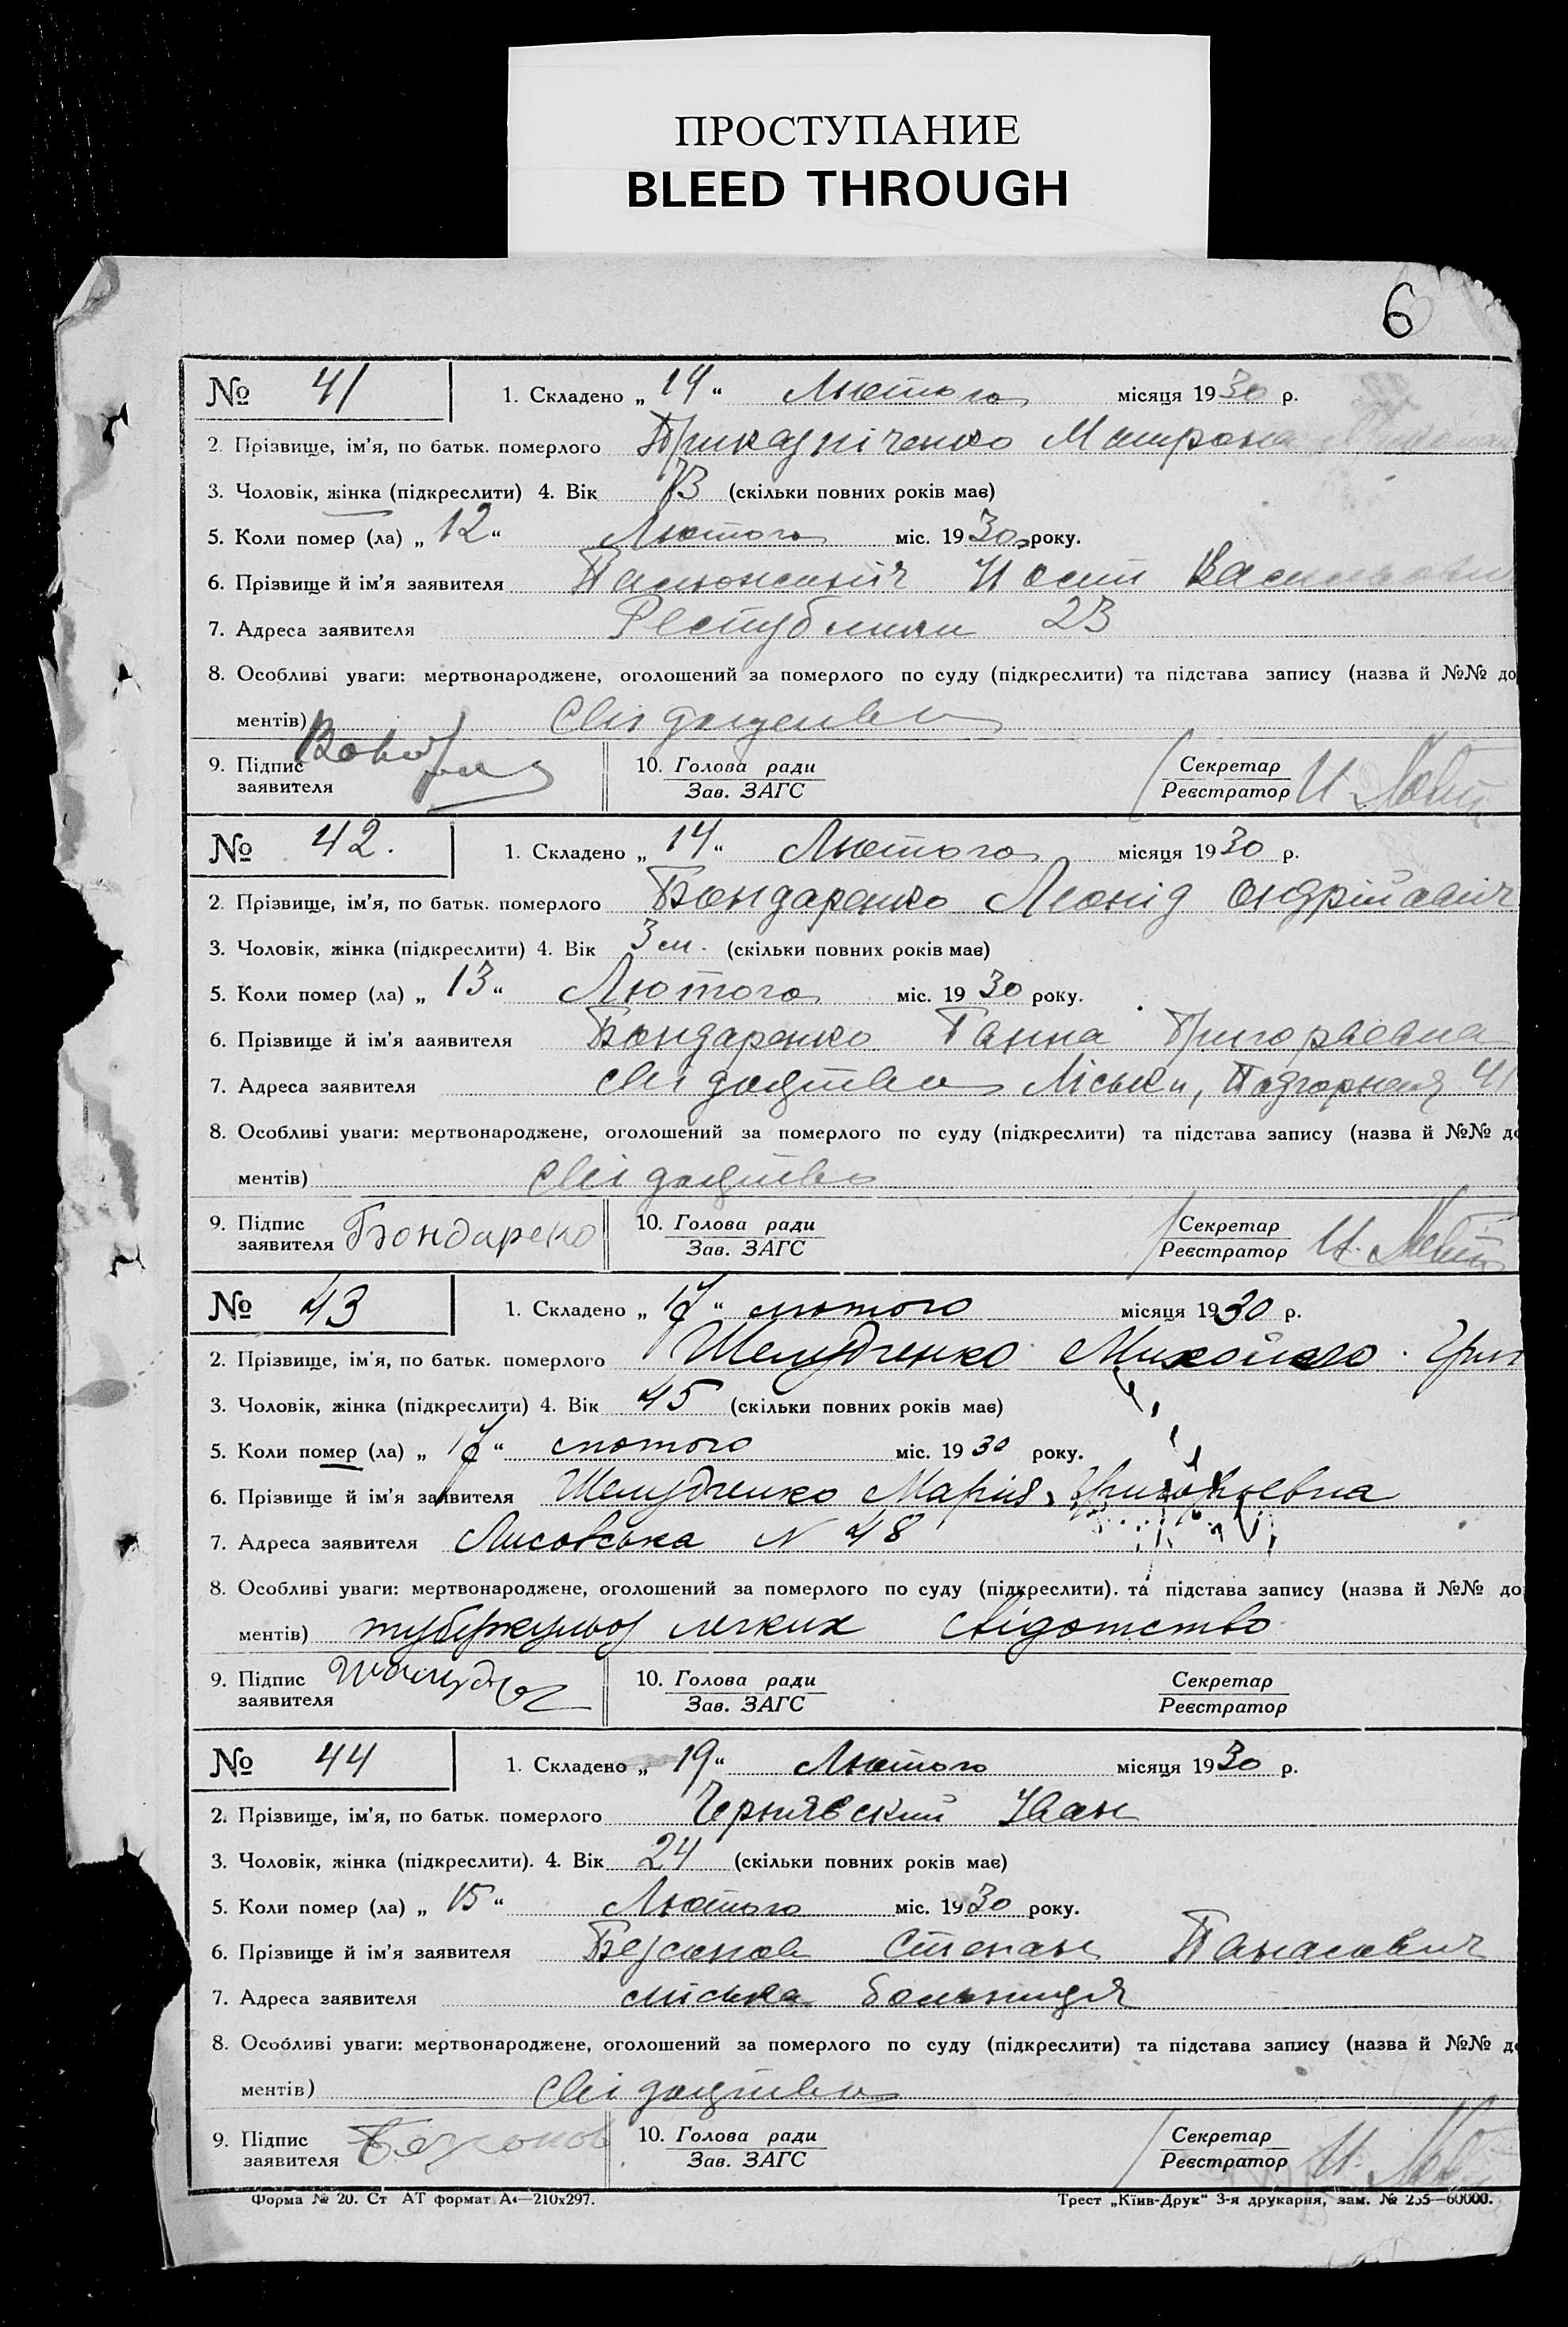 ПРОСТУПАНИЕ
BLEED THROUGH
6
№ 41 1. Складено „ 14 “ Лютого місяця 1930 р.
2. Прізвище, ім'я, по батьк. померлого
3. Чоловік, жінка (підкреслити) 4. Вік 73 (скільки повних років має)
5. Коли помер (ла) „ 12 “ Лютого міс. 1930 року.
6. Прізвище й ім'я заявителя
7. Адреса заявителя Республики 23
8. Особливі уваги: мертвонароджене, оголошений за померлого по суду (підкреслити) та підстава запису (назва й №№ до
ментів)
9. Підпис заявителя 10. Голова ради Зав. ЗАГС Секретар Реєстратор И.
№ 42. 1. Складено „ 14 “ Лютого місяця 1930 р.
2. Прізвище, ім'я, по батьк. померлого Бондаренко Леонід Ондрійович
3. Чоловік, жінка (підкреслити) 4. Вік 3 м. (скільки повних років має)
5. Коли помер (ла) „ 13 “ Лютого міс. 1930 року.
6. Прізвище й ім'я заявителя Бондаренко Ганна Григорьевна
7. Адреса заявителя Подгорная 41
8. Особливі уваги: мертвонароджене, оголошений за померлого по суду (підкреслити) та підстава запису (назва й №№ до
ментів)
9. Підпис заявителя Бондарено 10. Голова ради Зав. ЗАГС Секретар Реєстратор И.
№ 43 1. Складено „ 17 “ лютого місяця 1930 р.
2. Прізвище, ім'я, по батьк. померлого Шелудченко
3. Чоловік, жінка (підкреслити) 4. Вік 45 (скільки повних років має)
5. Коли помер (ла) „ 17 “ лютого міс. 1930 року.
6. Прізвище й ім'я заявителя Шелудченко Мария Григорьевна
7. Адреса заявителя Лисовська N 48
8. Особливі уваги: мертвонароджене, оголошений за померлого по суду (підкреслити). та підстава запису (назва й №№ до
ментів) туберкульоз легких свідотство
9. Підпис заявителя 10. Голова ради Зав. ЗАГС Секретар Реєстратор
№ 44 1. Складено „ 19 “ Лютого місяця 1930 р.
2. Прізвище, ім'я, по батьк. померлого Чернявский Иван
3. Чоловік, жінка (підкреслити). 4. Вік 24 (скільки повних років має)
5. Коли помер (ла) „ 15 “ Лютого міс. 1930 року.
6. Прізвище й ім'я заявителя Степан Панасович
7. Адреса заявителя міська больниця
8. Особливі уваги: мертвонароджене, оголошений за померлого по суду (підкреслити) та підстава запису (назва й №№ до
ментів)
9. Підпис заявителя 10. Голова ради Зав. ЗАГС Секретар Реєстратор И.
Форма № 20. Ст АТ формат А4—210х297. Трест „Київ-Друк“ 3-я друкарня, зам. № 255—60000.